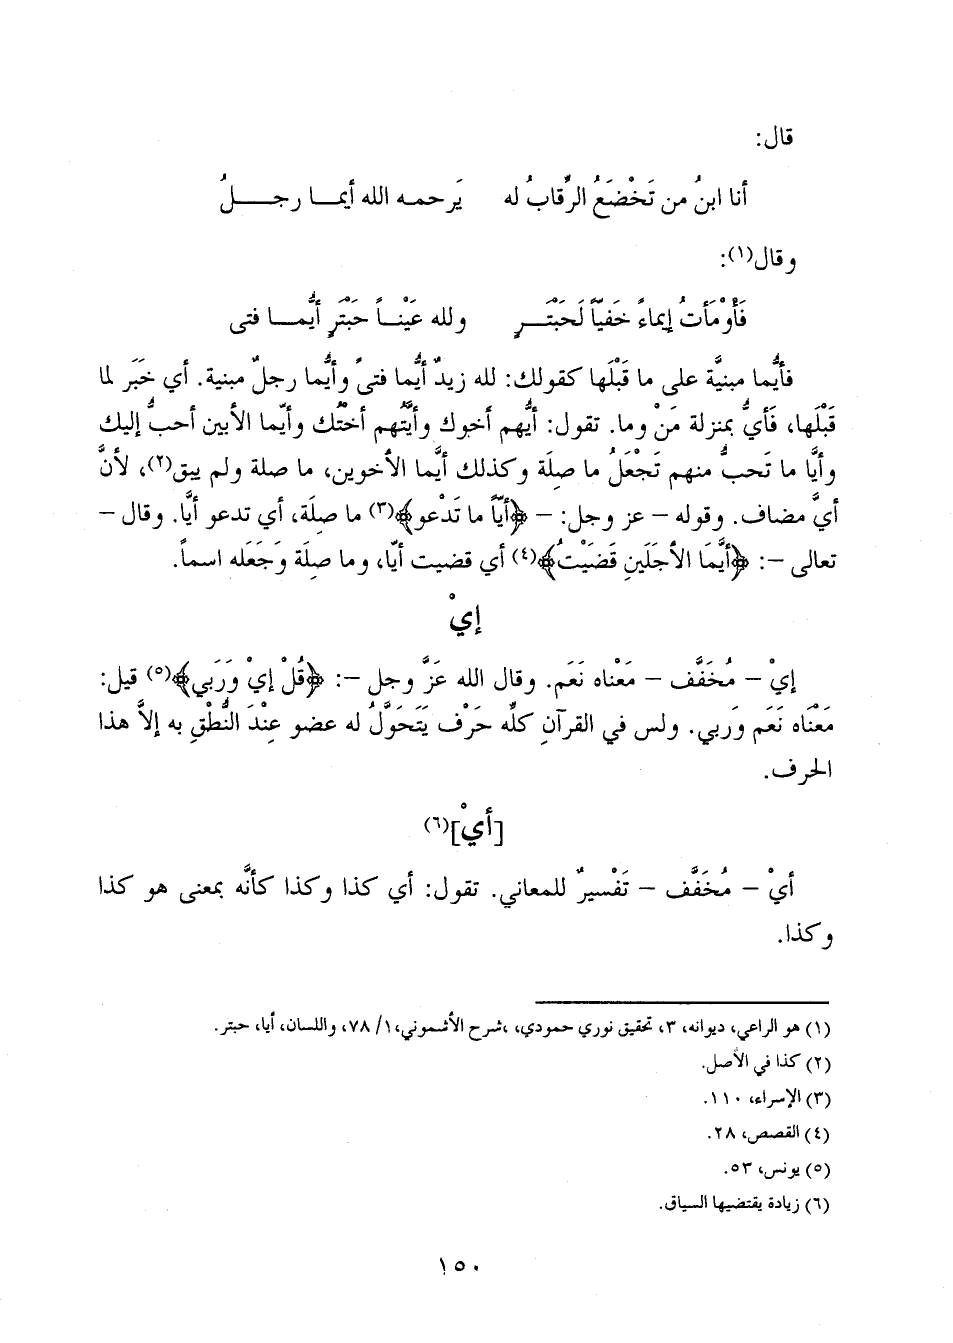 قال:
أنا ابنُ من تَخْضَعُ الرِّقابُ له يَرحمـه الله أيمـا رجـلُ
وقال(١):
فَأَوْمَأَتُ إيماءً خَفيّاً لَحَبْتَـرٍ ولله عَيْنـاً حَبْتَرٍ أيُّمـا فتى
فأيُّما مبنيَّة على ما قَبْلَها كقولك: لله زيدٌ أيُّما فتىً وأيُّما رجلٌ مبنية. أي خَبَر لما
قَبْلَها، فَأيُّ بمنزلة مَنْ وما. تقول: أيُّهم أخوك وأيَّتُهم أختُك وأيّما الأبين أحبُّ إليك
وأيَّا ما تَحبُّ منهم تَجْعَلُ ما صِلَة وكذلك أيَّما الأخوين، ما صلة ولم يبق(٢)، لأنَّ
أيَّ مضاف. وقوله – عز وجل: – ﴿أيّاً ما تَدْعو﴾(٣) ما صلَة، أي تدعو أيَّا. وقال –
تعالى –: ﴿أيَّمَا الأجَلَينِ قَضَيْتُ﴾(٤) أي قضيت أيّا، وما صِلَة وجَعَله اسماً.
إيْ
إيْ – مُخَفَّف – مَعْناه نَعَم. وقال الله عَزَّ وجل –: ﴿قُلْ إيْ وَرَبي﴾(٥) قيل:
مَعْناه نَعَم وَربي. ولس في القرآنِ كلِّه حَرْف يَتَحوَّلُ له عضو عِنْدَ النُّطْقِ به إلاَّ هذا
الحرف.
[أيْ](٦)
أيْ – مُخَفَّف – تَفْسيرٌ للمعاني. تقول: أي كذا وكذا كأنَّه بمعنى هو كذا
وكذا.
(١) هو الراعي، ديوانه، ٣، تحقيق نوري حمودي، ،شرح الأشموني،١/ ٧٨، واللسان، أيا، حبتر.
(٢) كذا في الأصل.
(٣) الإسراء، ١١٠.
(٤) القصص، ٢٨.
(٥) يونس، ٥٣.
(٦) زيادة يقتضيها السياق.
١٥٠